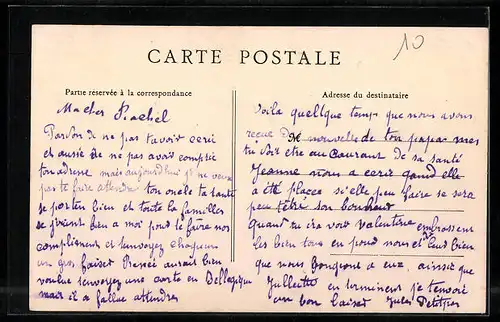 10
CARTE POSTALE
Partie réservée à la correspondance
Ma cher Rachel
Pardon de ne pas t'avoir ecrie
et ausie de ne pas avoir comprie
ton adrese mais aujourdhui je ne veux
pas te faire attendre ton oncle ta tante
se porten bien et toute la familles
se joient bien a moi pour te faire nos
compliment et t'envoyez chaqueun
un gros baiser Renée aurait bien
voulue t'envoyez une carte en Bellegique
mair il a fallue attendres
Adresse du destinataire
Voila quellque temp que nous avons
recue de nouvelle de ton papas mes
tu doit etre au courant de sa santé
Jeanne nous a ecrie quand elle
a été place si elle peu faire se sera
peu têtre son bonheur
quant tu ira voir Valentine embrassent
les bien tous en pour nous et bien
que nous pongeons a eux, ainsie que
Jullette en terminent je t'envoie
un bon baiser Jules